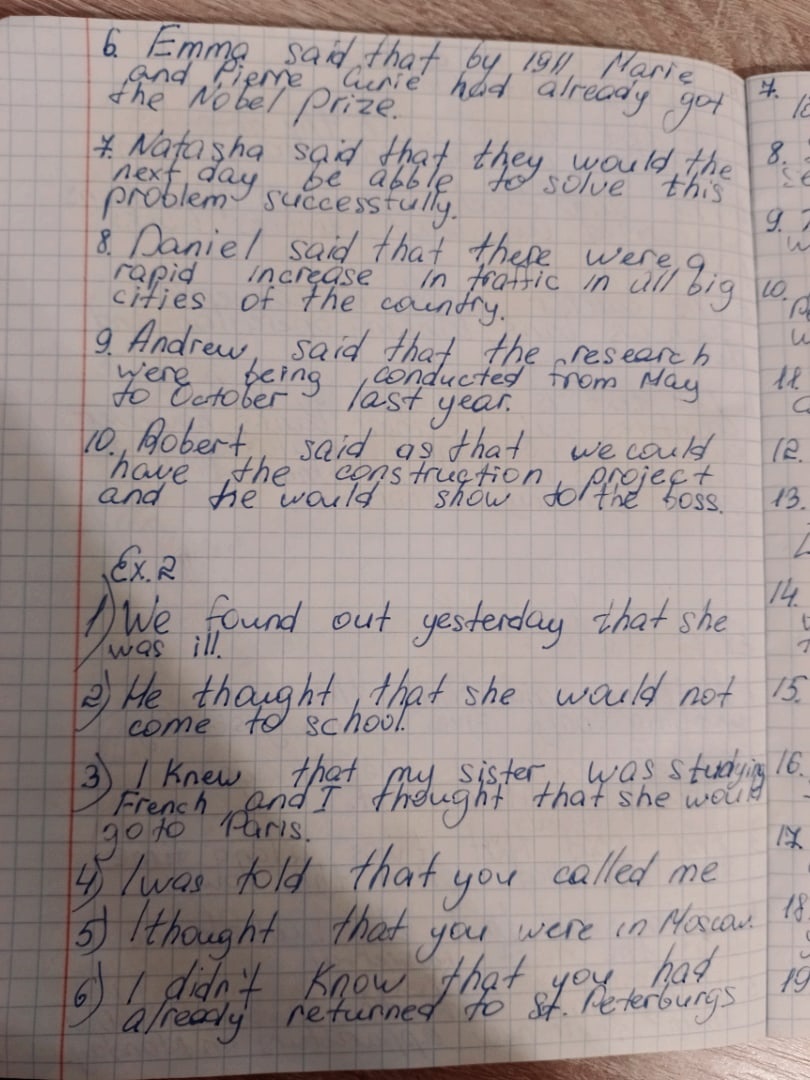 6. Emma said that by 1911 Marie
and Pierre Curie had already got
the Nobel Prize.
7. Natasha said that they would the
next day be abble to solve this
problem successfully.
8. Daniel said that there were a
rapid increase in traffic in all big
cities of the country.
9. Andrew said that the research
were being conducted from May
to October last year.
10. Robert said as that we could
have the construction project
and he would show to the boss.
Ex. 2
1) We found out yesterday that she
was ill.
2) He thought that she would not
come to school.
3) I knew that my sister was studying
French and I thought that she would
go to Paris.
4) I was told that you called me
5) I thought that you were in Moscow.
6) I didn't know that you had
already returned to St. Peterburgs
7.
8.
9.
10.
11.
12.
13.
14.
15.
16.
17.
18.
19